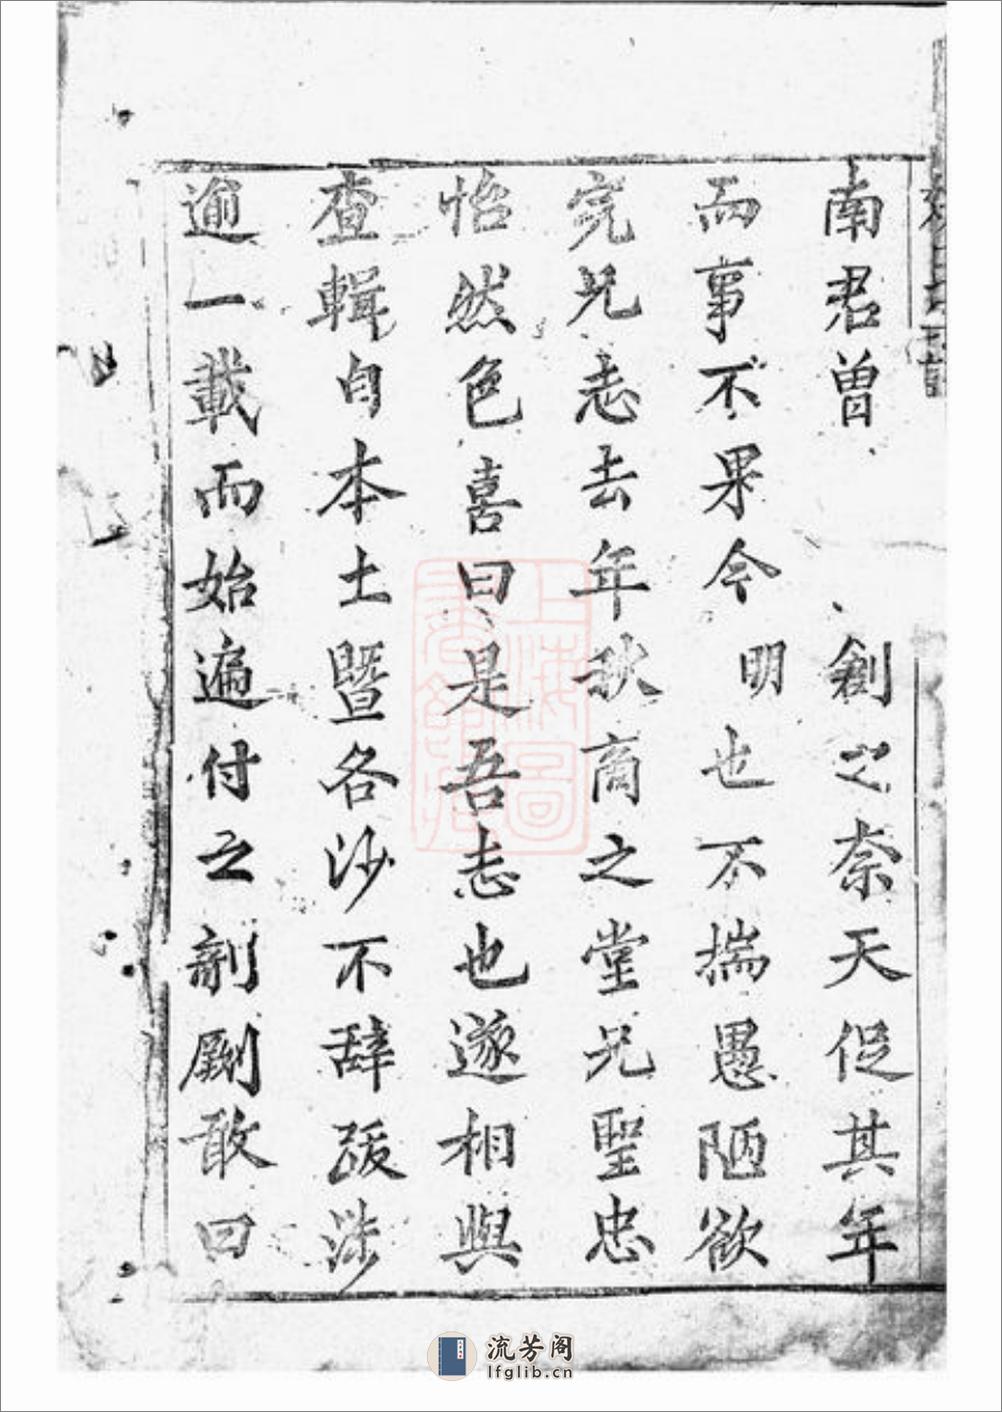 南君曾創之奈天促其年
而事不果今明也不揣愚陋欲
完兄志去年秋商之堂兄聖忠
怡然色喜曰是吾志也遂相與
查輯自本土暨各沙不辞跋涉
逾一載而始遍付之剞劂敢曰
上海圖書館藏
流芳阁
lfglib.cn